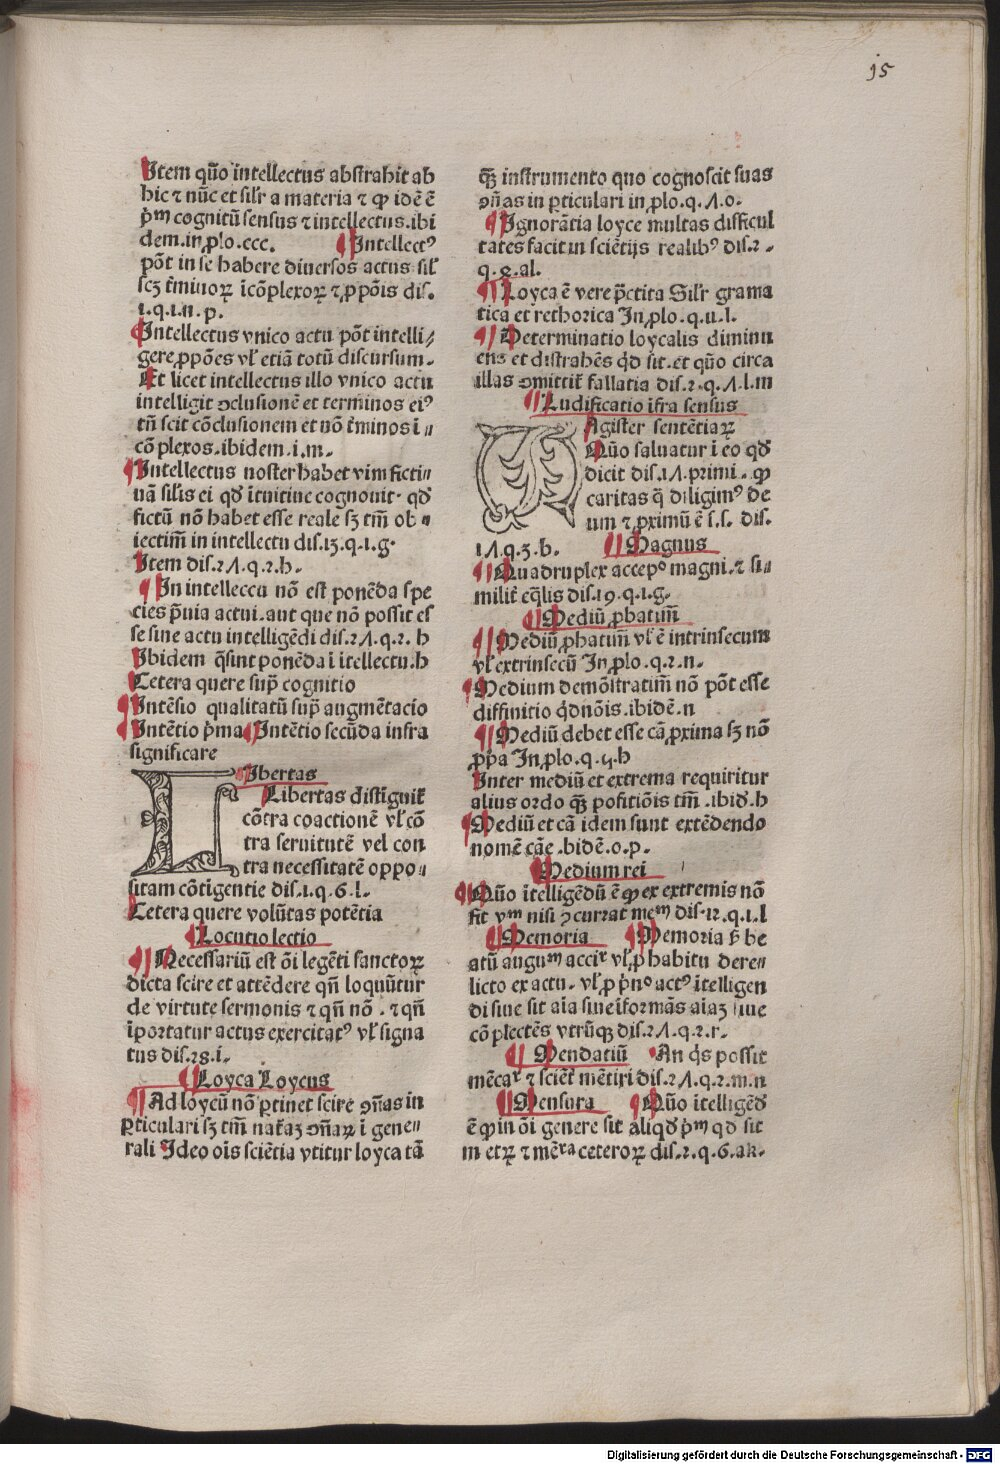 15
Item qũo intellectus abstrahit ab
hic ⁊ nũc et silꝛ a materia ⁊ ꝙ idẽ ẽ
p̃ᵐ cognitũ sensus ⁊ intellectus.ibi
dem.in ꝓlo.ccc. ¶Intellectꝰ
põt in se habere diuersos actus sil̃
scꝫ t̃minoꝝ ĩcõplexoꝝ ⁊ ꝓpõis dis.
1.q.1.n.p.
¶Intellectus vnico actu põt intelli⸗
gere ꝓpões vl̓ etiã totũ discursum.
Et licet intellectus illo vnico actu
intelligit ꝯclusionẽ et terminos eiꝰ
tñ scit cõclusionem et nõ t̃minos ĩ⸗
cõplexos.ibidem.i.m.
¶Intellectus noster habet vim ficti⸗
uã sil̃is ei qđ ĩtuitiue cognouit. qđ
fictũ nõ habet esse reale sꝫ tm̃ ob⸗
iectiũ in intellectu dis.13.q.1.g.
Item dis.2Λ.q.2.h.
¶In intellectu nõ est ponẽda spe
cies p̃uia actui.aut que nõ possit es
se sine actu intelligẽdi dis.2Λ.q.2. h
Ibidem q̃sint ponẽda ĩ ĩtellectu.h
Cetera quere sup̃ cognitio
¶Intẽsio qualitatũ sup̃ augmẽtacio
¶Intẽtio p̃ma ¶Intẽtio secũda infra
significare
LIbertas
Libertas distĩguit̃
cõtra coactionẽ vl̓ cõ
tra seruitutẽ vel con
tra necessitatẽ oppo⸗
sitam cõtigentie dis.1.q.6.l.
Cetera quere volũtas potẽtia
¶Locutio lectio
¶Necessariũ est õi legẽti sanctoꝝ
dicta scire et attẽdere qñ loquũtur
de virtute sermonis ⁊ qñ nõ . ⁊ qñ
ĩportatur actus exercitatꝰ vl̓ signa
tus dis.28.i.
¶Loyca Loycus
¶Ad loycũ nõ ꝑtinet scire ꝯñas in
ꝑticulari sꝫ tm̃ nat̃aꝫ ꝯñaꝝ ĩ gene⸗
rali Ideo oĩs sciẽtia vtitur loyca tã
qꝫ̃ instrumento quo cognoscit suas
ꝯñas in ꝑticulari in ꝓlo.q.Λ.o.
¶Ignorãtia loyce multas difficul
tates facit in sciẽtijs realibꝰ dis.2.
q.8.al.
¶Loyca ẽ vere p̃ctita Silꝛ grama
tica et rethorica In ꝓlo.q.u.l.
¶Determinatio loycalis diminu
ens et distrahẽs qđ sit.et qũo circa
illas ꝯmittit̃ fallatia dis.2.q.Λ.l.m
¶Ludificatio ĩfra sensus
MAgister sentẽtiaꝝ
Qũo saluatur ĩ eo qđ
dicit dis.1Λ.primi. ꝙ
caritas q̃ diligimꝰ de
um ⁊ ꝓximũ ẽ s.s. dis.
1Λ.q.3.b. ¶Magnus
¶Quadruplex accepᵒ magni.⁊ si⸗
milit̃ eq̃lis dis.19.q.1.g.
¶Mediũ ꝓbatiuũ
¶Mediũ ꝓbatiuũ vl̓ ẽ intrinsecum
vl̓ extrinsecũ In ꝓlo.q.2.n.
¶Medium demõstratiuũ nõ põt esse
diffinitio qđnõis.ibidẽ.n
¶Mediũ debet esse cã ꝓxima sꝫ nõ
ꝓp̃a In ꝓlo.q.4.h
Inter mediũ et extrema requiritur
alius ordo qꝫ̃ positiõis tm̃ .ibiđ.h
¶Mediũ et cã idem sunt extẽdendo
nomẽ cãe .bidẽ.o.p.
¶Medium rei
¶Qũo ĩtelligẽdũ ẽ ꝙ ex extremis nõ
fit vᵐ nisi ꝯcurrat meᵐ dis.12.q.1.l
¶Memoria ¶Memoria ẜ be
atũ auguᵐ accir̃ vl̓ ꝓ habitu dere⸗
licto ex actu. vl̓ ꝓ p̃nᵒ actꝰ ĩtelligen
di siue sit aĩa siue ĩformãs aĩaꝫ siue
cõplectẽs vtrũqꝫ dis.2Λ.q.2.r.
¶Mendatiũ ¶An q̃s possit
mẽcar̃ ⁊ sciẽt̃ mẽtiri dis.2Λ.q.2.m.n
¶Mensura ¶Qũo ĩtelligẽđ
ẽ ꝙ in õi genere sit aliqđ p̃ᵐ qđ sit
metꝝ ⁊ mẽʳᵃ ceteroꝝ dis.2.q.6.ak.
Digitalisierung gefördert durch die Deutsche Forschungsgemeinschaft - DFG